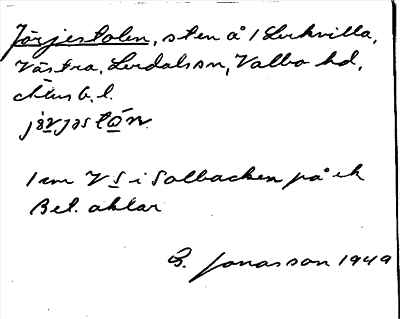 Jörjestolen, sten å 1 Lerkvilla,
Västra, Lerdalssn, Valbo hd,
Älvsb. l.
jörjəstön.
1 cm V S i Solbacken på ek
Bet. aktar
G. Jonasson 1949